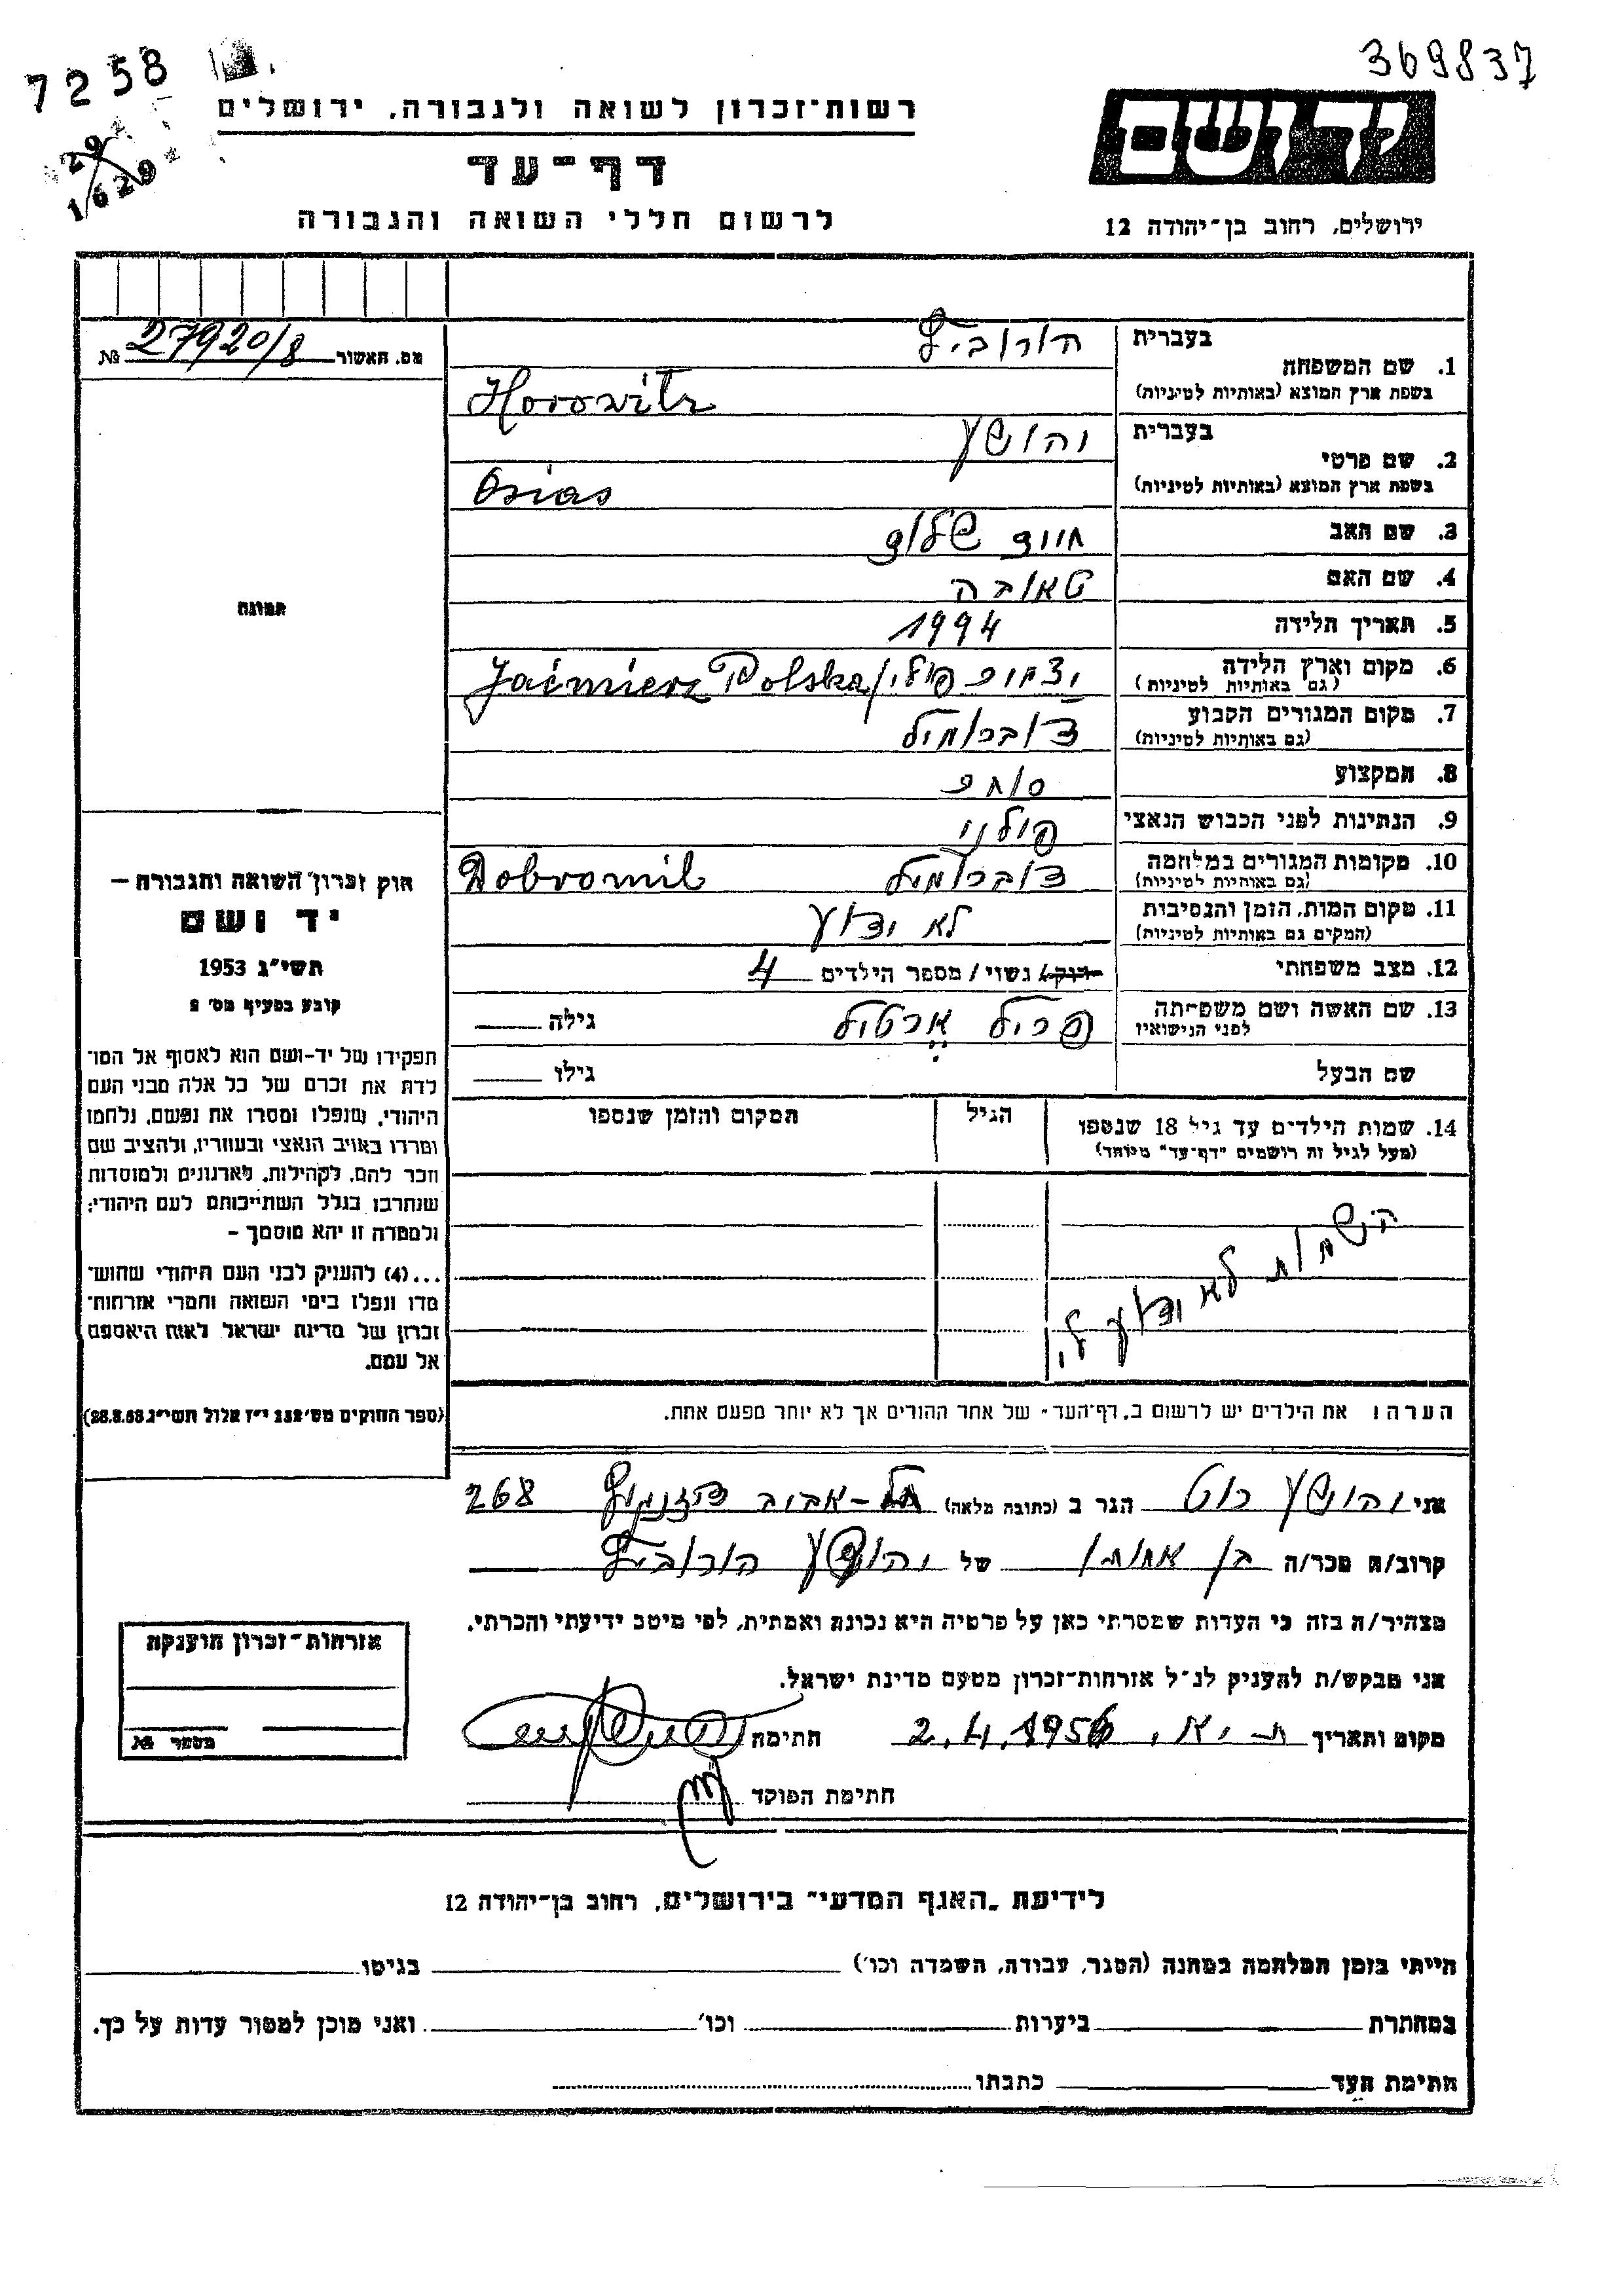 7258
369837
29
1629
רשות־זכרון לשואה ולגבורה, ירושלים
יד ושם
דף־עד
לרשום חללי השואה והגבורה
ירושלים, רחוב בן־יהודה 12
מס. האשור № 27920/8
1. שם המשפחה
בעברית הורוביץ
בשפת ארץ המוצא (באותיות לטיניות) Horowitz
2. שם פרטי
בעברית יהושע
בשפת ארץ המוצא (באותיות לטיניות) Osias
3. שם האב חיים שלום
4. שם האם טאובה
5. תאריך הלידה 1994
6. מקום וארץ הלידה
(גם באותיות לטיניות) Jaćmierz Polska /
7. מקום המגורים הקבוע דוברומיל
(גם באותיות לטיניות)
8. המקצוע סוחר
9. הנתינות לפני הכבוש הנאצי פולני
10. מקומות המגורים במלחמה דוברומיל Dobromil
(גם באותיות לטיניות)
11. מקום המות, הזמן והנסיבות לא ידוע
(המקום גם באותיות לטיניות)
12. מצב משפחתי רווק/ נשוי / מספר הילדים 4
13. שם האשה ושם משפחתה
לפני הנישואין פריל גילה
שם הבעל גילו
14. שמות הילדים עד גיל 18 שנספו הגיל המקום והזמן שנספו
(מעל לגיל זה רושמים "דף־עד" מיוחד)
השמות לא ידוע לי
הערה: את הילדים יש לרשום ב„דף־העד״ של אחד ההורים אך לא יותר מפעם אחת.
תמונה
חוק זכרון השואה והגבורה —
יד ושם
תשי״ג 1953
קובע בסעיף מס׳ 2
תפקידו של יד־ושם הוא לאסוף אל המו־
לדת את זכרם של כל אלה מבני העם
היהודי, שנפלו ומסרו את נפשם, נלחמו
ומרדו באויב הנאצי ובעוזריו, ולהציב שם
וזכר להם, לקהילות, לארגונים ולמוסדות
שנחרבו בגלל השתייכותם לעם היהודי;
ולמטרה זו יהא מוסמך –
...(4) להעניק לבני העם היהודי שהוש־
מדו ונפלו בימי השואה והמרי אזרחות־
זכרון של מדינת ישראל לאות היאספם
אל עמם.
(ספר החוקים מס׳ 132 י״ז אלול תשי״ג 28.8.53)
אני יהושע רוט הגר ב (כתובה מלאה) תל-אביב דיזנגוף 268
קרוב/ת מכר/ה בן אחותו של יהושע הורוביץ
מצהיר/ה בזה כי העדות שמסרתי כאן על פרטיה היא נכונה ואמתית, לפי מיטב ידיעתי והכרתי.
אני מבקש/ת להעניק לנ״ל אזרחות־זכרון מטעם מדינת ישראל.
מקום ותאריך ת.א. 2.4.1956 חתימה
חתימת הפוקד
אזרחות־זכרון הוענקה
מספר №
לידיעת „האגף המדעי״ בירושלים, רחוב בן־יהודה 12
הייתי בזמן המלחמה במחנה (הסגר, עבודה, השמדה וכו׳) בגיטו
במחתרת ביערות וכו׳ ואני מוכן למסור עדות על כך.
חתימת העד כתבתו